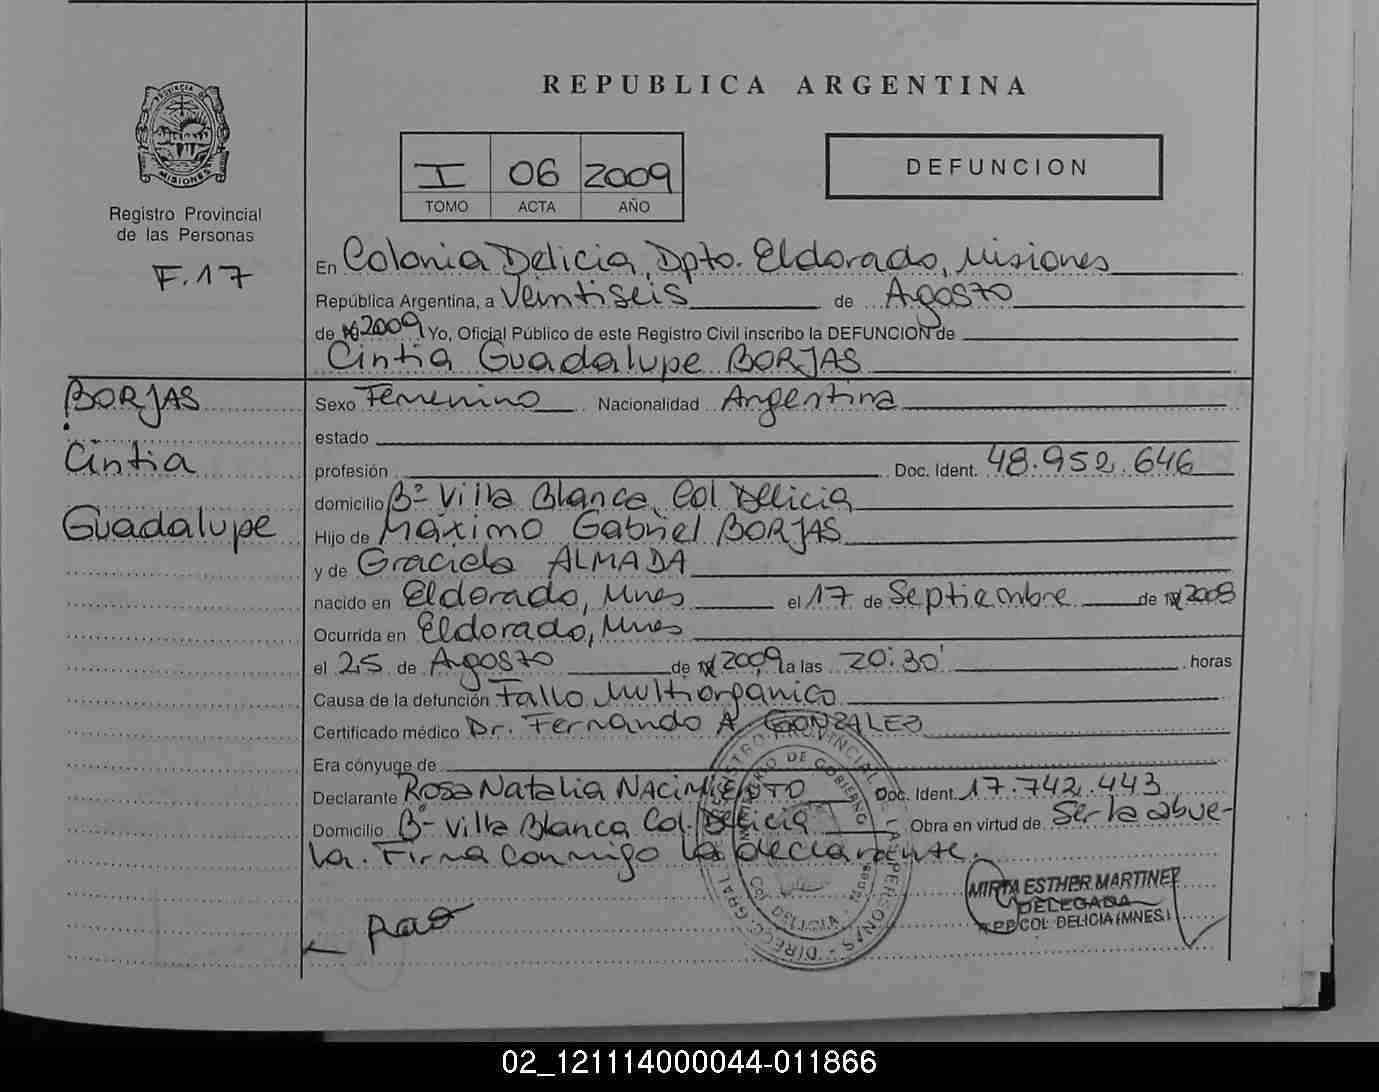 REPUBLICA ARGENTINA
PROVINCIA DE
MISIONES
Registro Provincial
de las Personas
F.17
I 06 2009
TOMO ACTA AÑO
DEFUNCION
En Colonia Delicia, Dpto. Eldorado, Misiones
República Argentina, a Veintiseis de Agosto
de 2009 Yo, Oficial Público de este Registro Civil inscribo la DEFUNCION de
Cintia Guadalupe BORJAS
BORJAS
Cintia
Guadalupe
Sexo Femenino Nacionalidad Argentina
estado
profesión Doc. Ident. 48.952.646
domicilio Bº Villa Blanca, Col Delicia
Hijo de Máximo Gabriel BORJAS
y de Graciela ALMADA
nacido en Eldorado, Mnes el 17 de Septiembre de 2008
Ocurrida en Eldorado, Mnes
el 25 de Agosto de 2009 a las 20:30' horas
Causa de la defunción Fallo Multiorganico
Certificado médico Dr. Fernando A. GONZALEZ
Era cónyuge de
Declarante Rosa Natalia NACIMIENTO Doc. Ident. 17.742.443
Domicilio Bº Villa Blanca Col. Delicia Obra en virtud de Ser la abue-
la. Firma conmigo la declarante.
MIRTA ESTHER MARTINEZ
DELEGADA
COL. DELICIA (MNES.)
REGISTRO PROVINCIAL DE LAS PERSONAS - DIRECC. GRAL.
MINISTERIO DE GOBIERNO
COL. DELICIA - Misiones
02_121114000044-011866